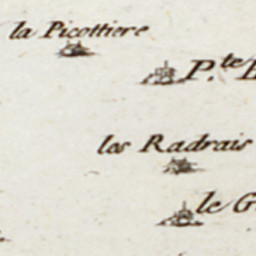 la Picottiere
P.te
les Radrais
le G